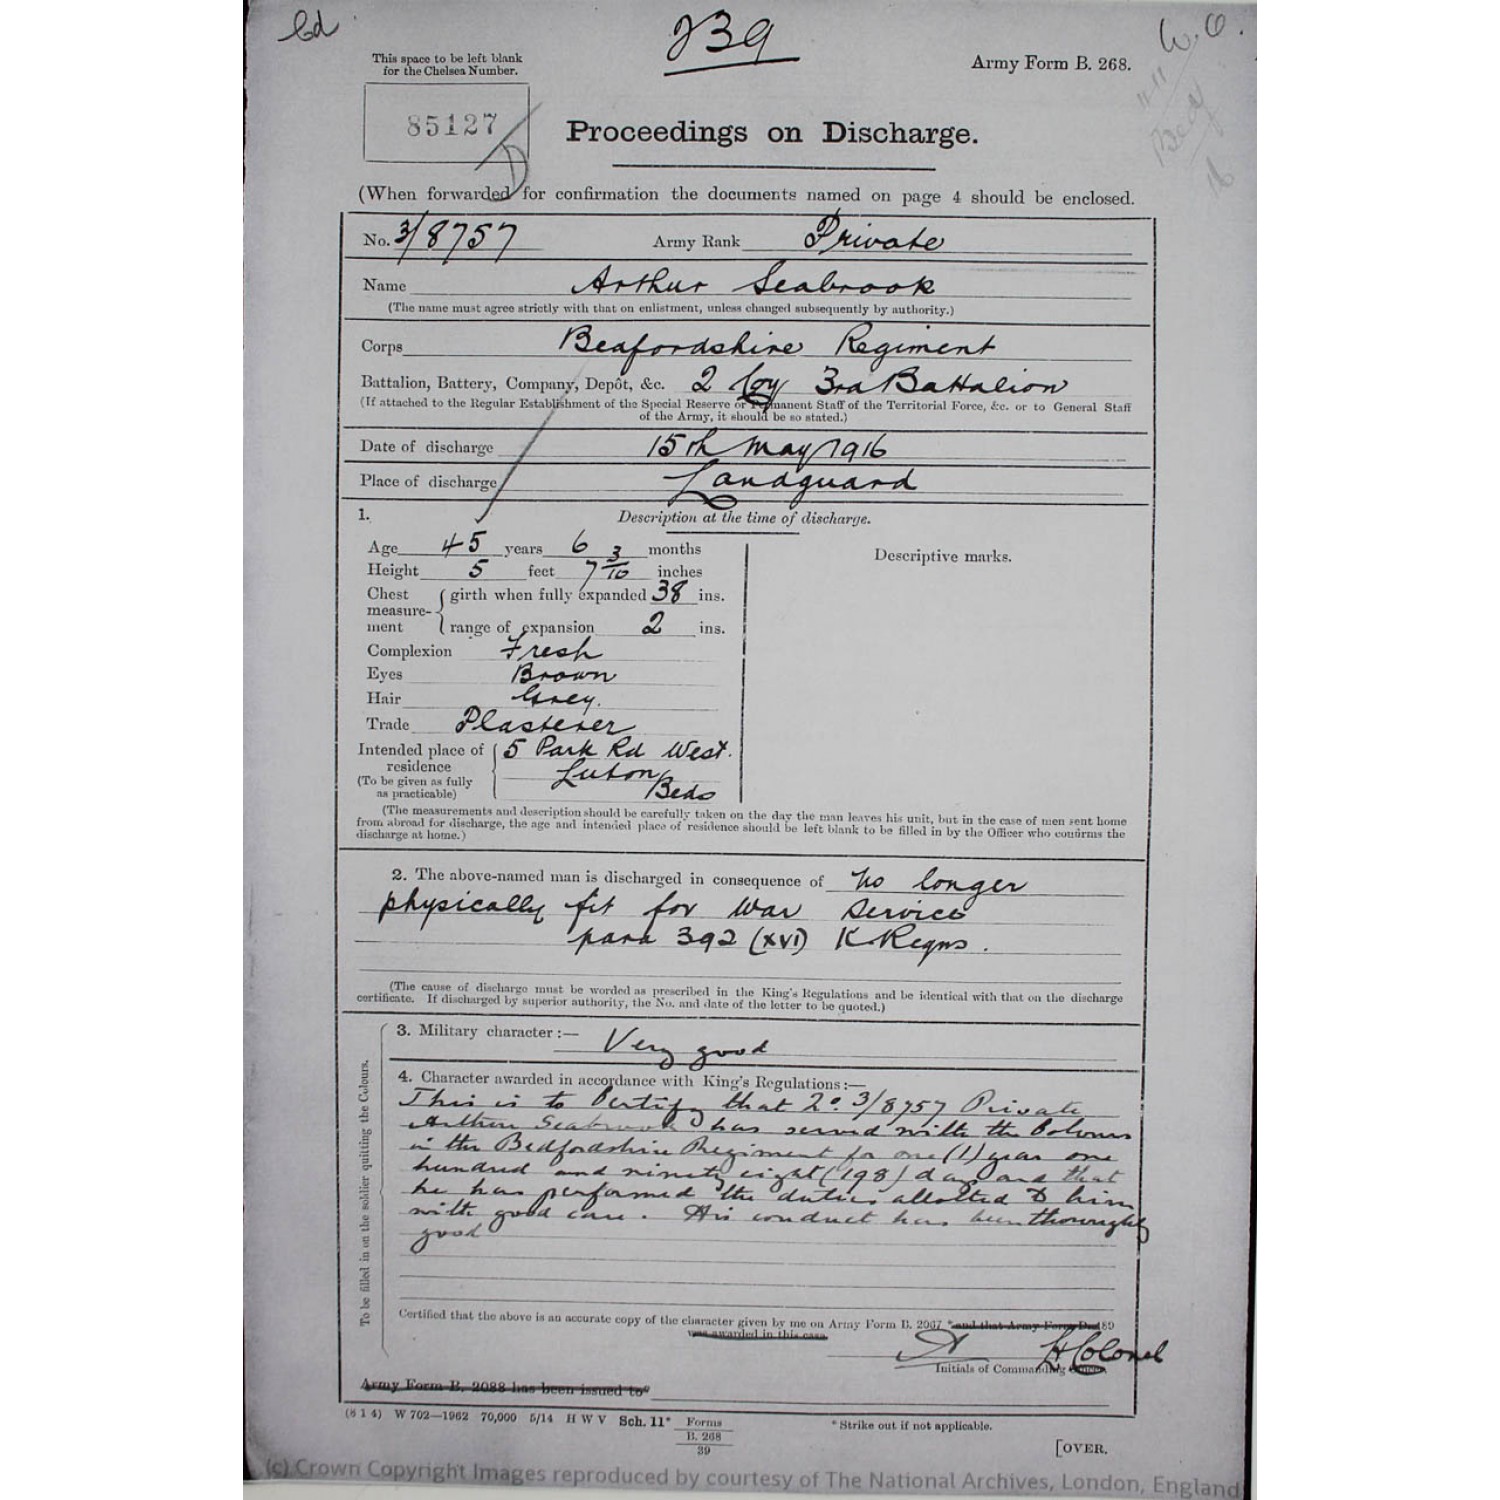 Cd
239
W.O.
This space to be left blank
for the Chelsea Number.
Army Form B. 268.
85127
Proceedings on Discharge.
(When forwarded for confirmation the documents named on page 4 should be enclosed.
No. 3/8757 Army Rank Private
Name Arthur Seabrook
(The name must agree strictly with that on enlistment, unless changed subsequently by authority.)
Corps Bedfordshire Regiment
Battalion, Battery, Company, Depôt, &c. 2 Coy 3rd Battalion
(If attached to the Regular Establishment of the Special Reserve or Permanent Staff of the Territorial Force, &c. or to General Staff
of the Army, it should be so stated.)
Date of discharge 15th May 1916
Place of discharge Landguard
1. Description at the time of discharge.
Age 45 years 6 months
Height 5 feet 7 3/10 inches
Chest measure-ment girth when fully expanded 38 ins.
range of expansion 2 ins.
Complexion Fresh
Eyes Brown
Hair Grey.
Trade Plasterer
Intended place of residence 5 Park Rd West.
(To be given as fully as practicable) Luton Beds
Descriptive marks.
(The measurements and description should be carefully taken on the day the man leaves his unit, but in the case of men sent home
from abroad for discharge, the age and intended place of residence should be left blank to be filled in by the Officer who confirms the
discharge at home.)
2. The above-named man is discharged in consequence of No longer
physically fit for War Service
para 392 (XVI) K Regns.
(The cause of discharge must be worded as prescribed in the King's Regulations and be identical with that on the discharge
certificate. If discharged by superior authority, the No. and date of the letter to be quoted.)
To be filled in on the soldier quitting the Colours.
3. Military character :— Very good
4. Character awarded in accordance with King's Regulations :—
This is to Certify that No. 3/8757 Private
Arthur Seabrook has served with the Colours
in the Bedfordshire Regiment for one (1) year one
hundred and ninety eight (198) days and that
he has performed the duties allotted to him
with good care. His conduct has been thoroughly
good
Certified that the above is an accurate copy of the character given by me on Army Form B. 2067 *and that Army Form D. 489
was awarded in this case
Lt Colonel
Initials of Commanding Officer.
Army Form B. 2088 has been issued to*
(8 1 4) W 702—1962 70,000 5/14 H W V Sch. 11* Forms B. 268 39
* Strike out if not applicable.
[OVER.
(c) Crown Copyright Images reproduced by courtesy of The National Archives, London, England